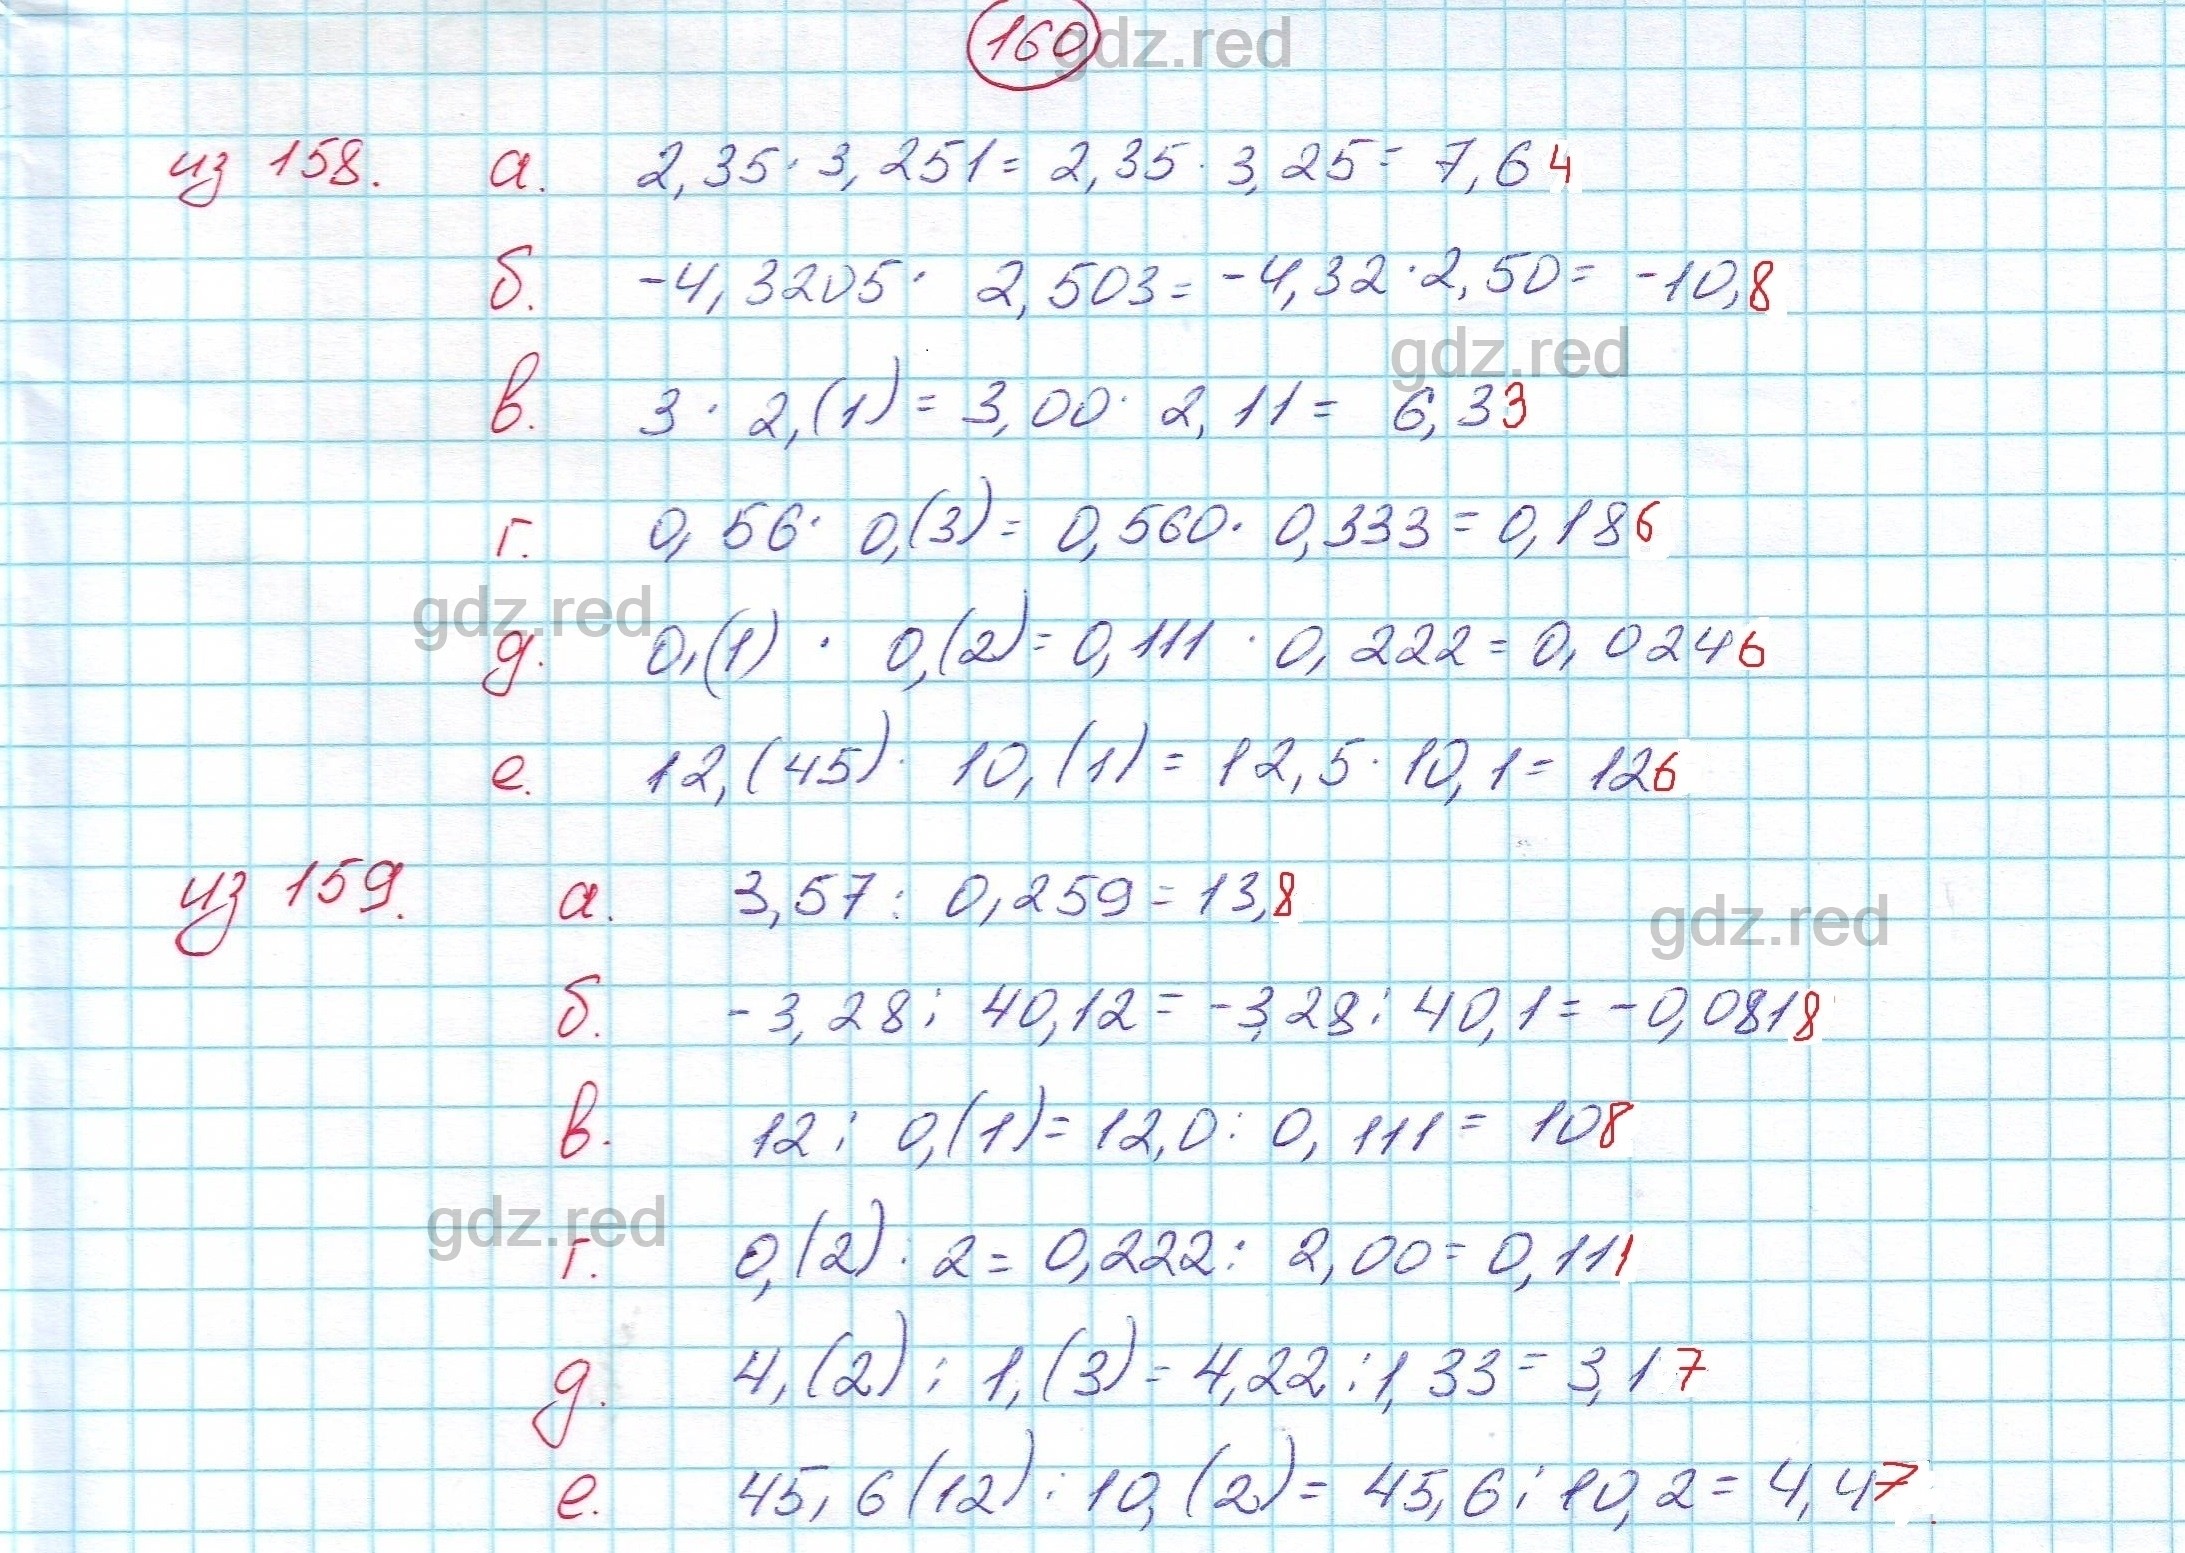 160 gdz.red
из 158. а. 2,35 · 3,251 = 2,35 · 3,25 = 7,64
б. -4,3205 · 2,503 = -4,32 · 2,50 = -10,8
gdz.red
в. 3 · 2,(1) = 3,00 · 2,11 = 6,33
г. 0,56 · 0,(3) = 0,560 · 0,333 = 0,186
gdz.red
д. 0,(1) · 0,(2) = 0,111 · 0,222 = 0,0246
е. 12,(45) · 10,(1) = 12,5 · 10,1 = 126
из 159. а. 3,57 : 0,259 = 13,8
gdz.red
б. -3,28 : 40,12 = -3,28 : 40,1 = -0,0818
в. 12 : 0,(1) = 12,0 : 0,111 = 108
gdz.red
г. 0,(2) : 2 = 0,222 : 2,00 = 0,111
д. 4,(2) : 1,(3) = 4,22 : 1,33 = 3,17
е. 45,6(12) : 10,(2) = 45,6 : 10,2 = 4,47